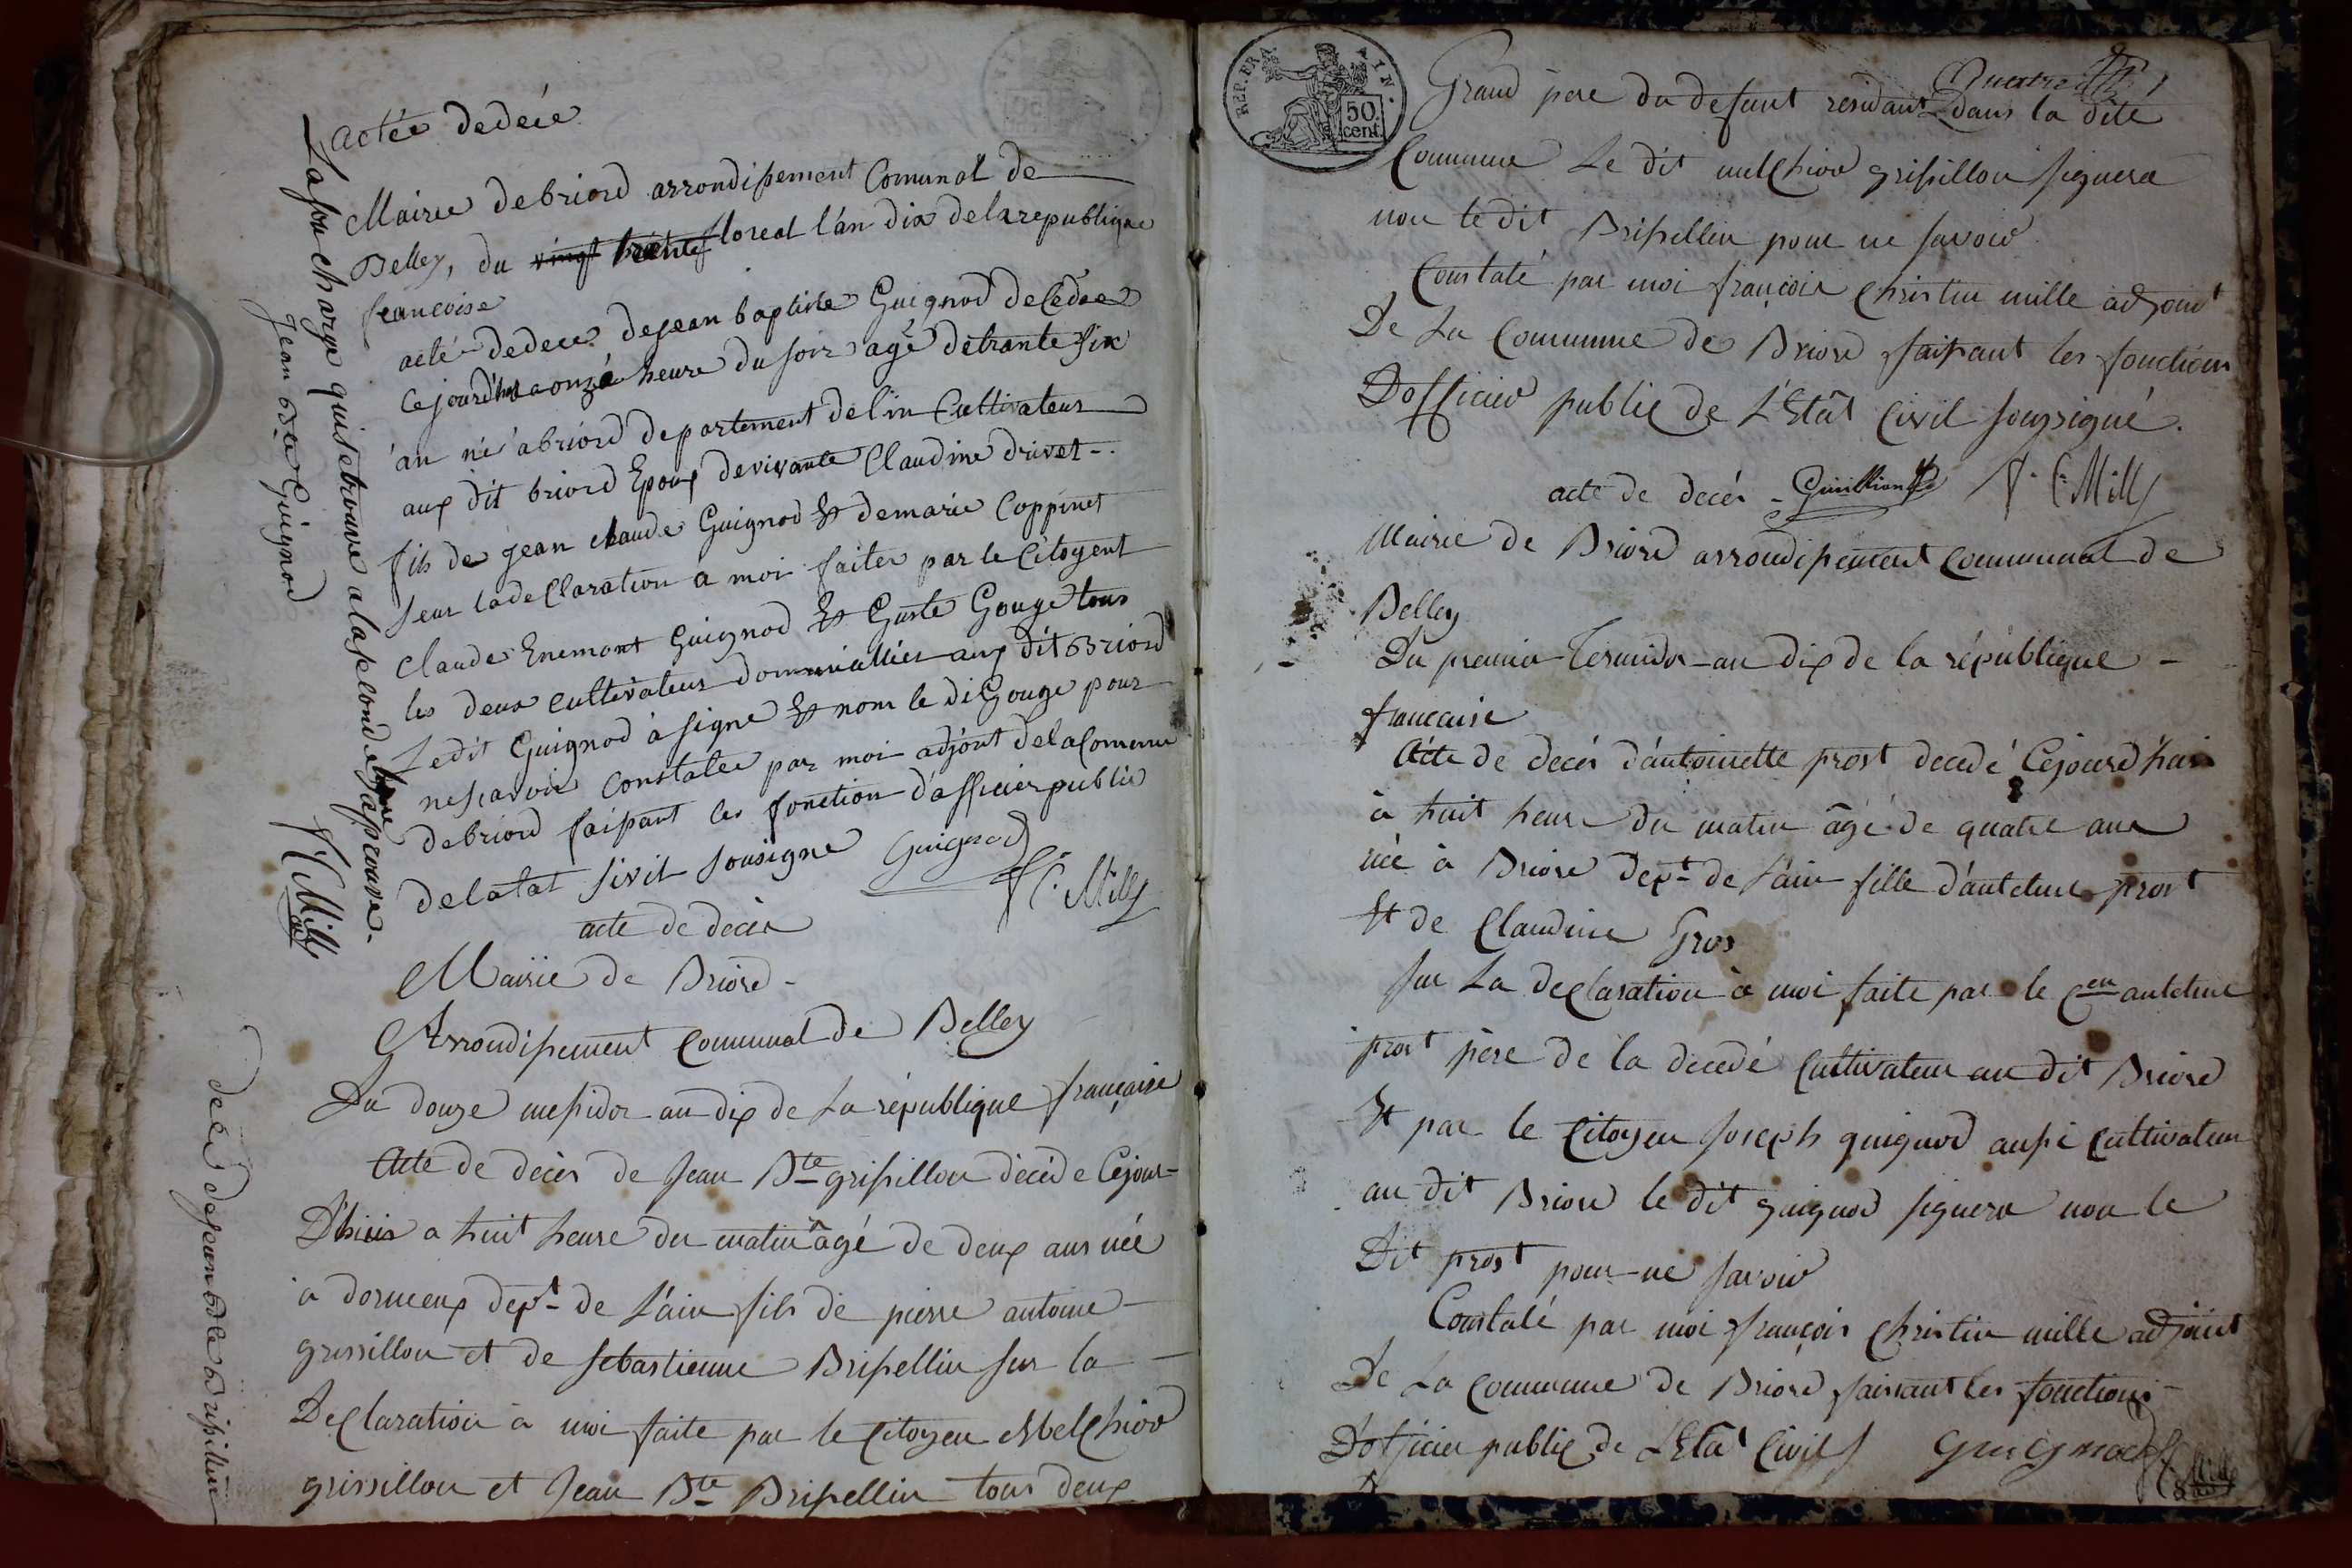 actée dedecé
Mairie debriord arrondissement Comunal de
Belley, du vingt floreal l'an dix delarepublique
françoise
acté dedecé dejean baptiste Guignod decédee
cejourd'hui a onzé heure du soir agé detrante six
an né abriord departement delin Cultivateur
aux dit briord Epoux devivante Claudine drivet -
fils de jean claude Guignod & demarie Coppinet
seur ladeclaration a moi faiter par le Citoyent
Claude Enemont Guignod & Guste Gouge tous
les deux cultivateur domicalliér aux dit Briord
Ledit Guignod à signe & nom le di Gouge pour
nesçavoir constatée par moi adjont delaComenu
debriord faisant les fonction d'afficier public
delatat sivil sousigne Guignod
F C. Mill
Lason charge quisetrouve alasseconde ligne aprouve.
Jean Bte Guignod
F C Mill
adj
acte de decès
Mairie de Briord -
Arrondissement communal de Belley
Du douze messidor an dix de La république française
Acte de decès de Jean Bte grissillon décéde Cejour-
D'huis a huit heure du matin âgé de deux ans née
à dormeux dept de L'ain fils de pierre antoine
grissillon et de sebastienne Brissellin sur la
Declaration à moi faite par le Citoyen Melchior
grissillon et Jean Bte Brissellin tous deux
decés dejean bte Grisillion
REP. FRA
50
cent.
quatre
Grand père du defunt residant dans la dite
Commune Le dit melchior grissillon signera
non le dit Brissellin pour ne savoir
Constaté par moi françois christin mille adjoint
De La Commune de Briord faissant les fonctions
Dofficier public de L'Etât Civil soussigné.
acte de decés - Guillion F. C. Mill
Mairie de Briord arrondissement communal de
Belley
Du premier Termidor an dix de la république -
française
Acte de decés d'antoinette prost decedé Cejourd'huis
à huit heure du matin âgé de quatre ans
née à Briord dept de L'ain fille d'antelme prost
Et de Claudine Gros
sur La declaration à moi faite par le Cen antelme
prost père de la decedé Cultivateur au dit Briord
Et par le Citoyen Joseph guignod aussi Cultivateur
au dit Briord le dit guignod signera non le
Dit prost pour ne savoir
Constaté par moi françois christin mille adjoint
De La Commune de Briord faissant les fonctions
Dofficier public de L'Etât Civil Guignod